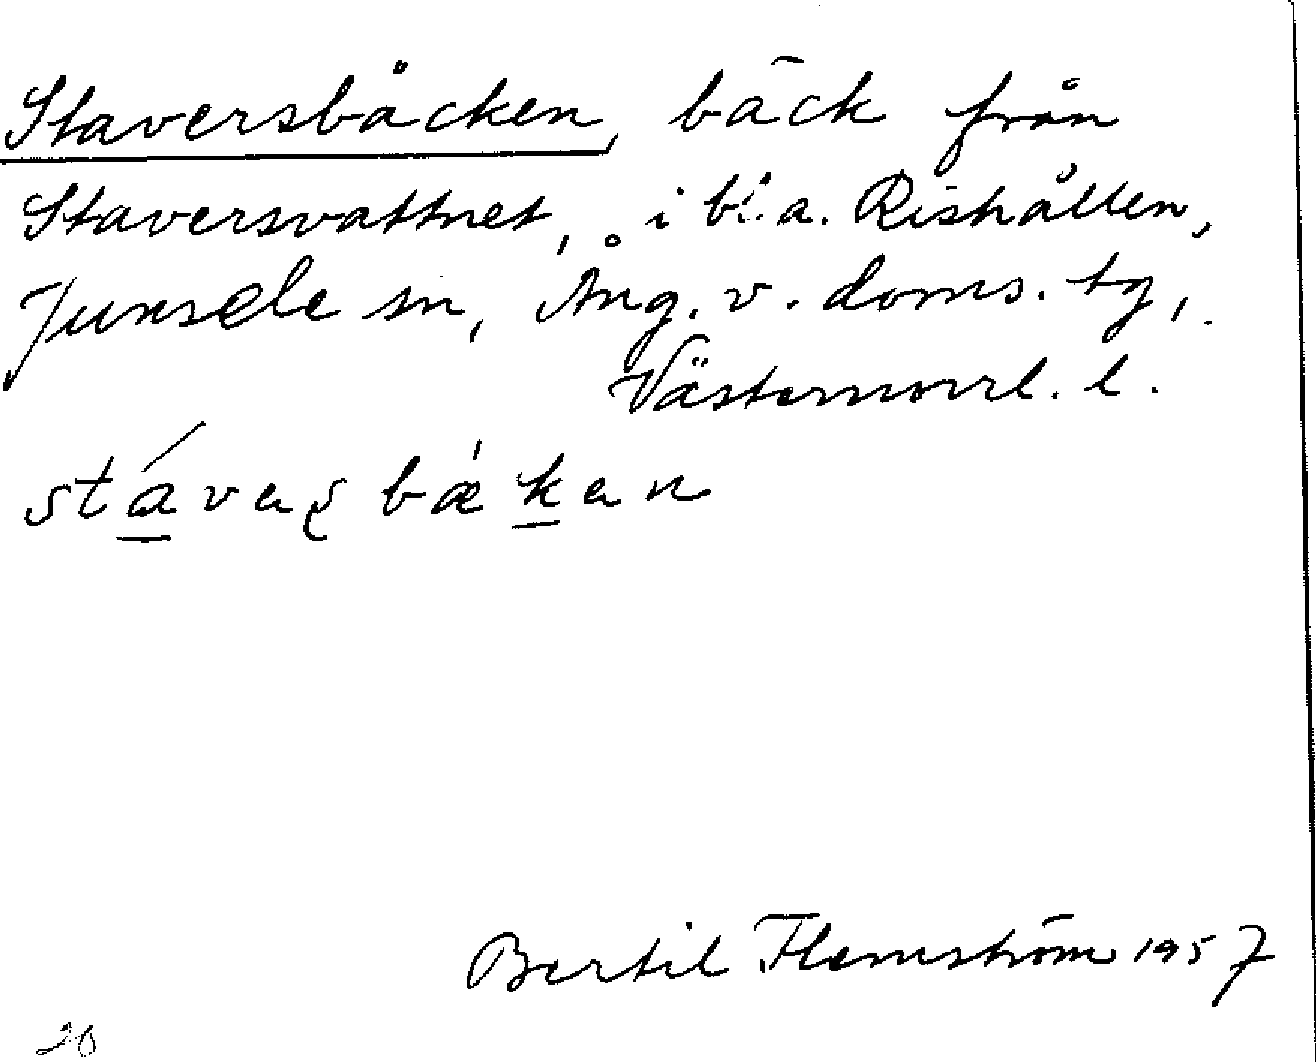 Staversbäcken, bäck från
Staversvattnet, i bl.a. Rishållen,
Junsele sn, Ång. v. doms. tg,
Västernorrl. l.
stávaʂbǽkan
Bertil Flemström 1957
20